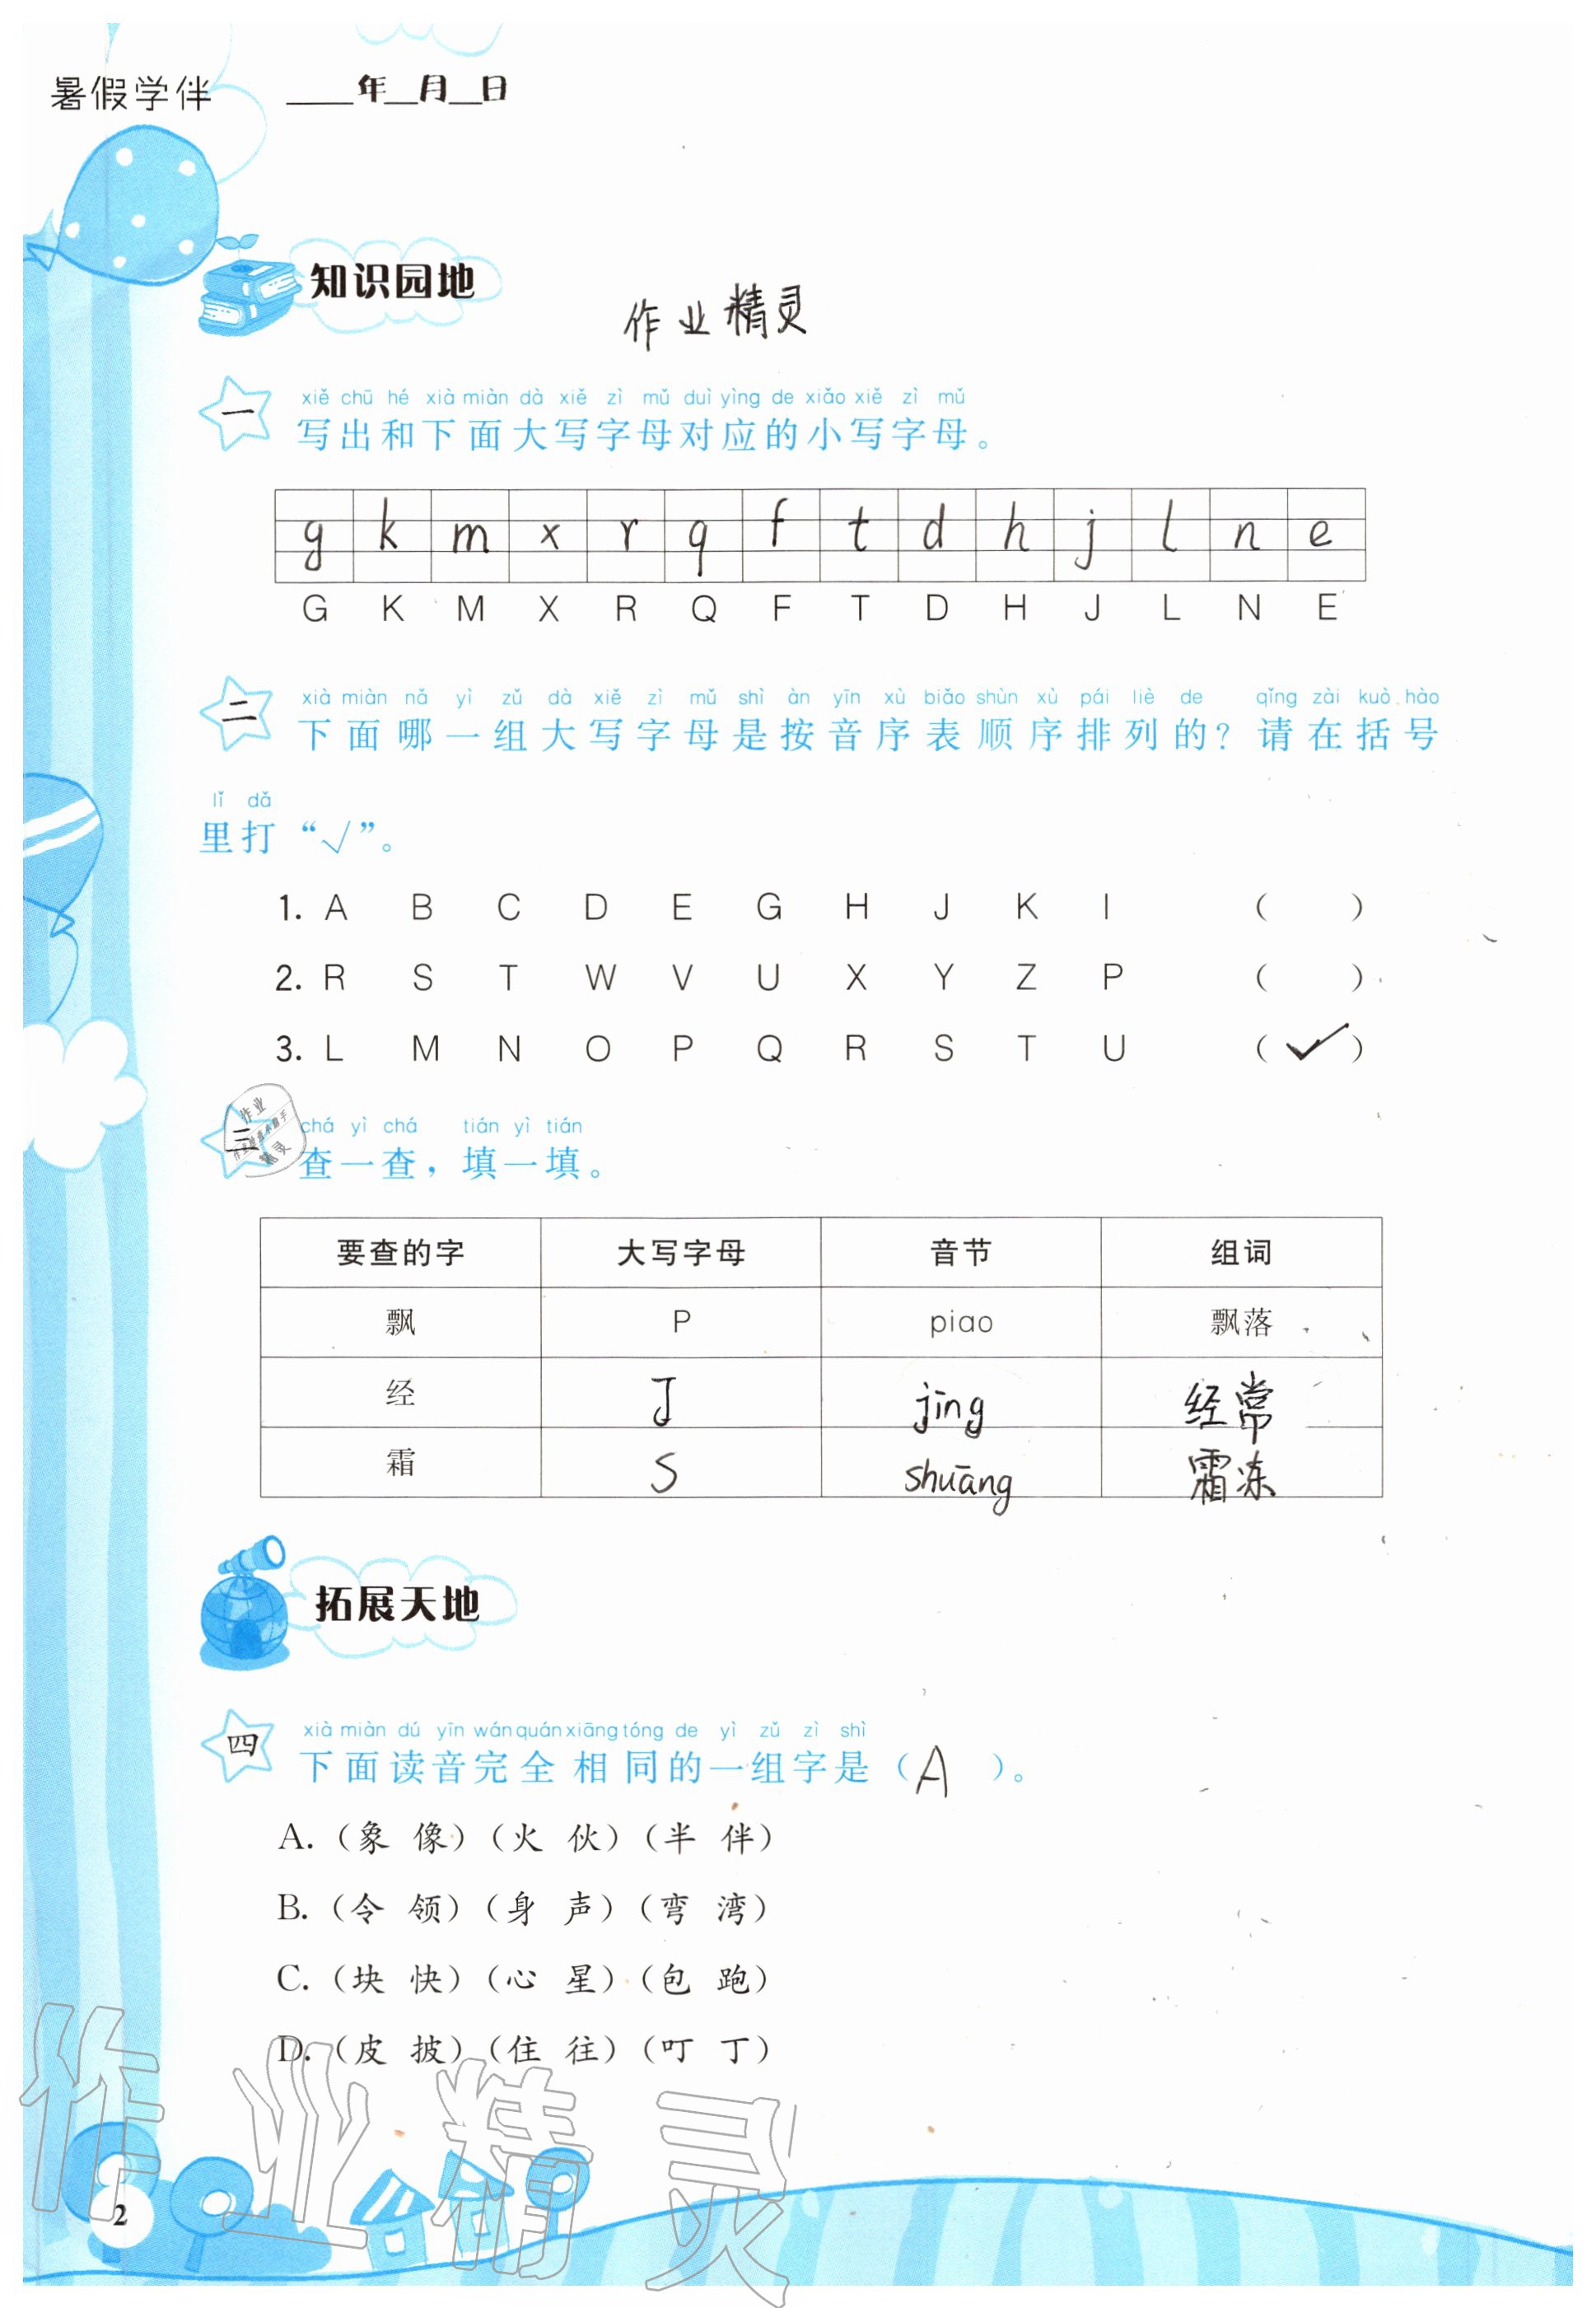 暑假学伴 ____年__月__日
知识园地
作业精灵
xiě chū hé xià miàn dà xiě zì mǔ duì yìng de xiǎo xiě zì mǔ
一 写出和下面大写字母对应的小写字母。
g k m x r q f t d h j l n e
G K M X R Q F T D H J L N E
xià miàn nǎ yì zǔ dà xiě zì mǔ shì àn yīn xù biǎo shùn xù pái liè de qǐng zài kuò hào
二 下面哪一组大写字母是按音序表顺序排列的?请在括号
lǐ dǎ
里打“√”。
1. A B C D E G H J K I ( )
2. R S T W V U X Y Z P ( )
3. L M N O P Q R S T U ( ✓ )
作业
精灵
chá yì chá tián yì tián
三 查一查，填一填。
要查的字 大写字母 音节 组词
飘 P piao 飘落
经 J jīng 经常
霜 S shuāng 霜冻
拓展天地
xià miàn dú yīn wán quán xiāng tóng de yì zǔ zì shì
四 下面读音完全相同的一组字是（ A ）。
A.（象 像）（火 伙）（半 伴）
B.（令 领）（身 声）（弯 湾）
C.（块 快）（心 星）（包 跑）
D.（皮 披）（住 往）（叮 丁）
作业精灵
2